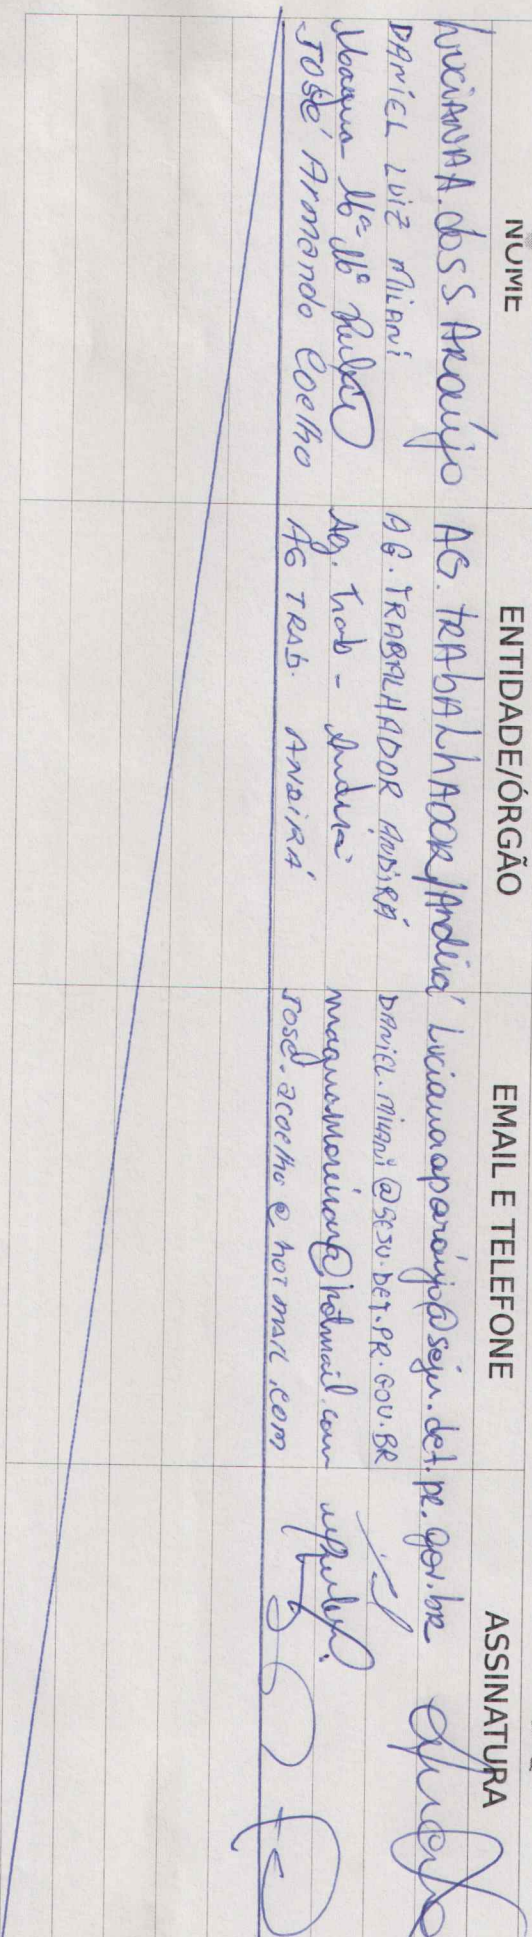 NOME ENTIDADE/ÓRGÃO EMAIL E TELEFONE ASSINATURA
LUCIANA A. dos S. ARAújo AG. TRAbALhADOR/Andirá Lucianaaparaujo@seju.det.pr.gov.br
DANIEL LUIZ MILANI AG. TRABALHADOR ANDIRÁ DANIEL.MILANI@SESU.DET.PR.GOV.BR
Magna Mª Mª Ag. Trab - Andirá
JOSÉ Armando Coelho AG TRAB. ANDIRÁ JOSÉ.acoelho@hotmail.com